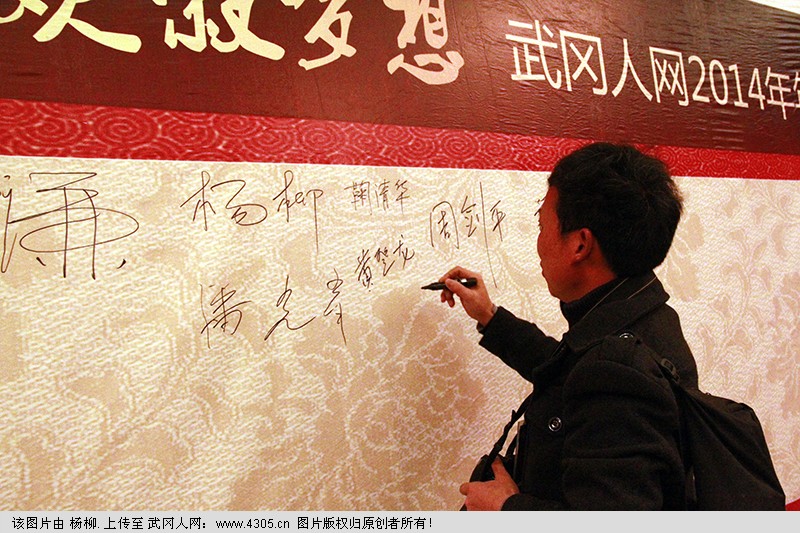 梦想
武冈人网2014年
杨柳
鞠清华
周剑平
黄楚龙
潘光学
该图片由 杨柳. 上传至 武冈人网：www.4305.cn 图片版权归原创者所有!